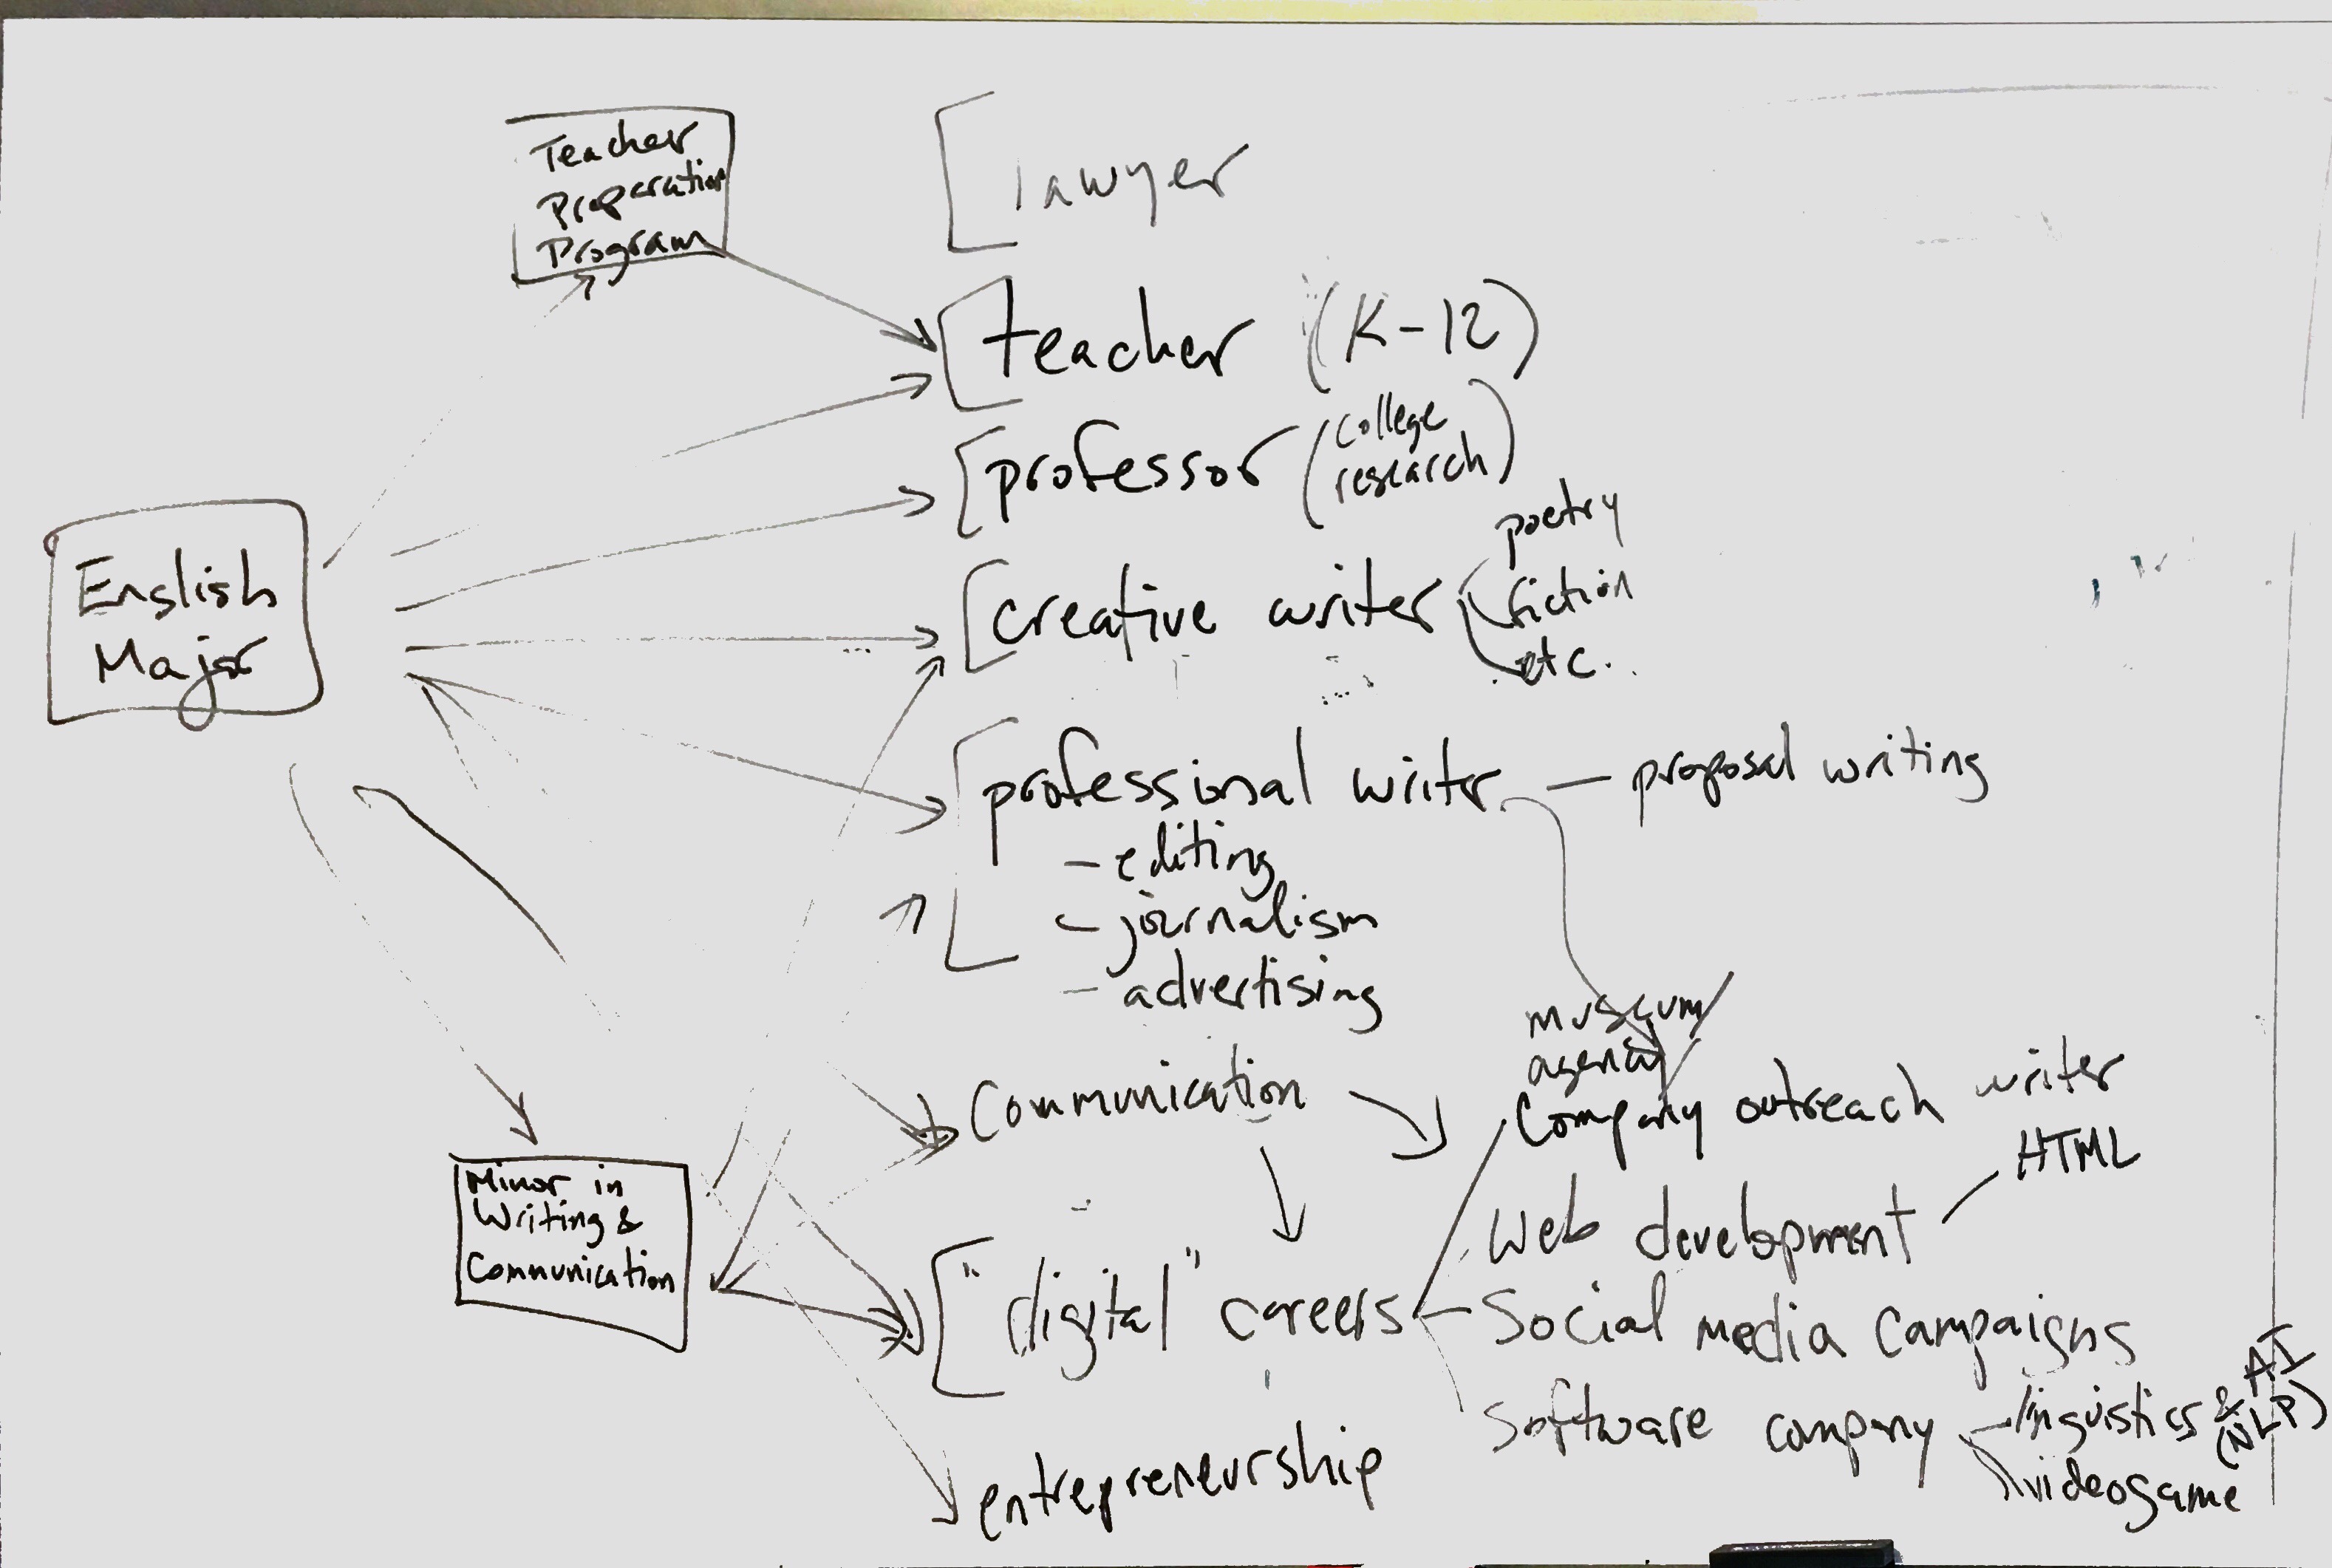 Teacher
Preparation
Program
lawyer
teacher (K-12)
professor (college
research)
English
Major
creative writer
poetry
fiction
etc.
professional writer — proposal writing
- editing
- journalism
- advertising
museum/
agency/
Communication
Company outreach writer
HTML
Minor in
Writing &
Communication
Web development
"digital" careers
Social media campaigns
Software company
linguistics & AI
(NLP)
videogame
entrepreneurship